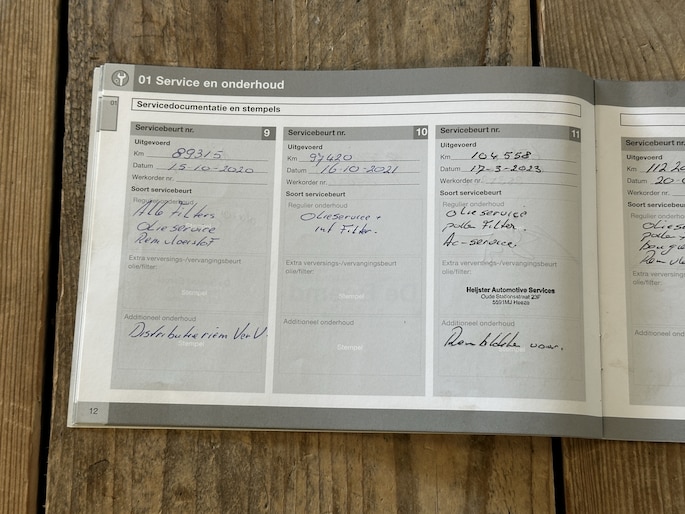 01 Service en onderhoud
01
Servicedocumentatie en stempels
Servicebeurt nr. 9
Uitgevoerd
Km 89315
Datum 15-10-2020
Werkorder nr.
Soort servicebeurt
Regulier onderhoud
Alle Filters
Olieservice
Remvloeistof
Extra verversings-/vervangingsbeurt
olie/filter:
Stempel
Additioneel onderhoud
Distributieriem Verv.
Stempel
Servicebeurt nr. 10
Uitgevoerd
Km 97420
Datum 16-10-2021
Werkorder nr.
Soort servicebeurt
Regulier onderhoud
Olieservice +
int Filter.
Extra verversings-/vervangingsbeurt
olie/filter:
Stempel
Additioneel onderhoud
Stempel
Servicebeurt nr. 11
Uitgevoerd
Km 104558
Datum 17-3-2023
Werkorder nr.
Soort servicebeurt
Regulier onderhoud
Olieservice
pollen Filter.
Ac-service
Extra verversings-/vervangingsbeurt
olie/filter:
Heijster Automotive Services
Oude Stationsstraat 23F
5591MJ Heeze
Additioneel onderhoud
Remblokken voor.
Stempel
Servicebeurt nr.
Uitgevoerd
Km
Datum
Werkorder nr.
Soort servicebeurt
Regulier onderhoud
Extra verversings-/vervangingsbeurt
olie/filter:
Additioneel onderhoud
12